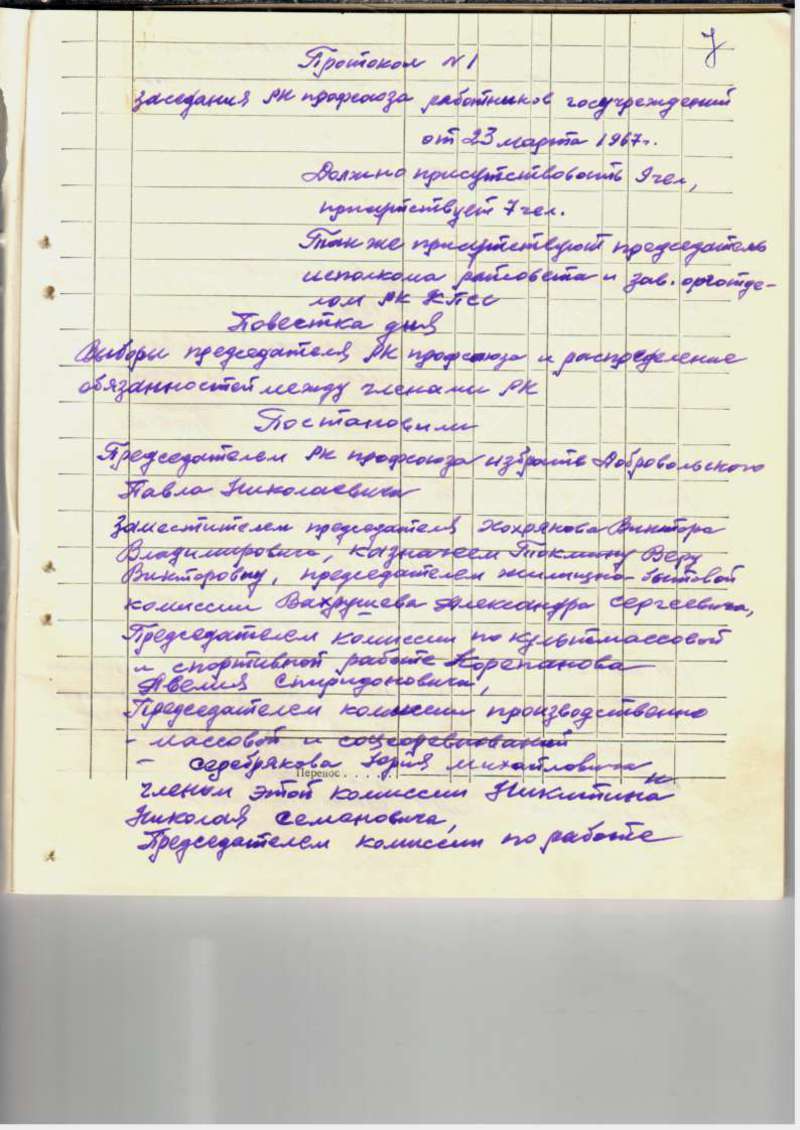 7
Протокол №1
заседания РК профсоюза работников госучреждений
от 23 марта 1967г.
Должно присутствовать 9 чел,
присутствует 7 чел.
Также присутствуют председатель
исполкома райсовета и зав. орготде-
лом РК КПСС
Повестка дня
Выборы председателя РК профсоюза и распределение
обязанностей между членами РК
Постановили
Председателем РК профсоюза избрать Добровольского
Павла Николаевича
Заместителем председателя Хохрякова Виктора
Владимировича, казначеем Токмину Веру
Викторовну, председателем жилищно-бытовой
комиссии Вахрушева Александра Сергеевича,
Председателем комиссии по культмассовой
и спортивной работе Корепанова
Авелия Спиридоновича,
Председателем комиссии производственно
- массовой и соцсоревнований
- Серебрякова Юрия Михайловича
Перенос . . . .
членом этой комиссии Никитина
Николая Семеновича,
Председателем комиссии по работе